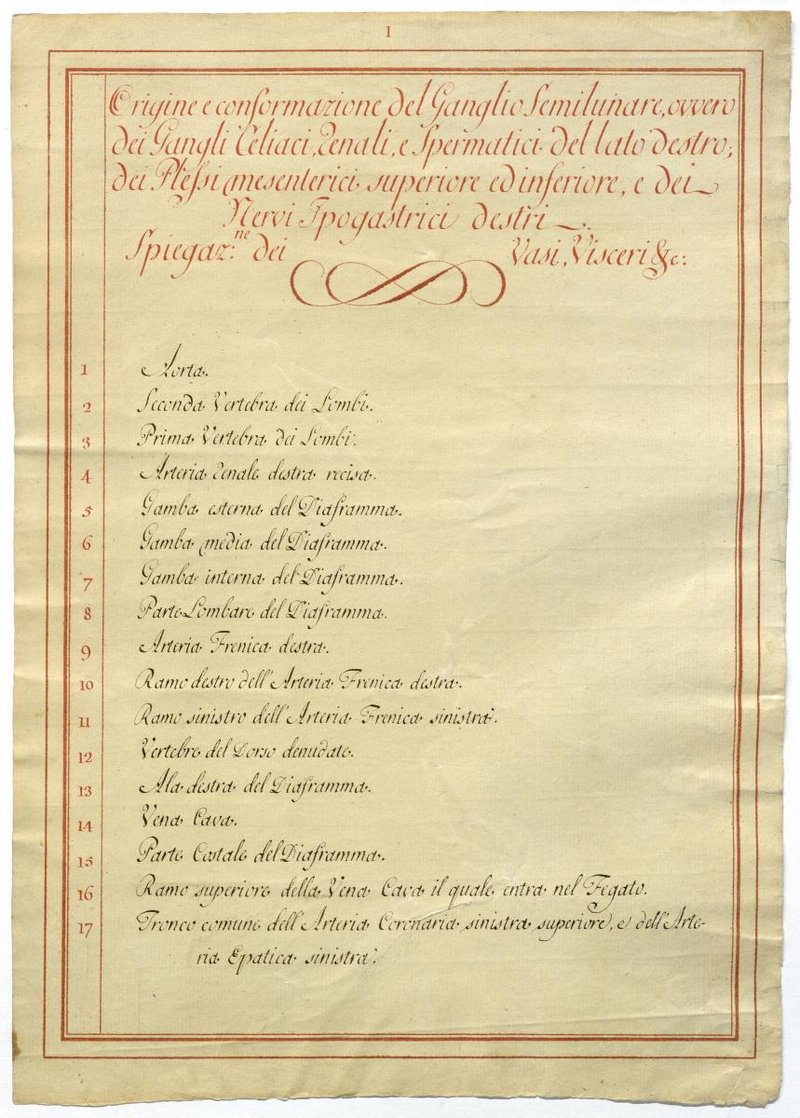 I
Origine e conformazione del Ganglio Semilunare, ovvero
dei Gangli Celiaci, Renali, e Spermatici del lato destro;
dei Plessi mesenterici superiore ed inferiore, e dei
Nervi Ipogastrici destri
Spiegaz:ne dei Vasi, Visceri &c:
1 Aorta.
2 Seconda Vertebra dei Lombi.
3 Prima Vertebra dei Lombi.
4 Arteria Renale destra recisa.
5 Gamba esterna del Diaframma.
6 Gamba media del Diaframma.
7 Gamba interna del Diaframma.
8 Parte Lombare del Diaframma.
9 Arteria Frenica destra.
10 Ramo destro dell'Arteria Frenica destra.
11 Ramo sinistro dell'Arteria Frenica sinistra.
12 Vertebre del Dorso denudate.
13 Ala destra del Diaframma.
14 Vena Cava.
15 Parte Costale del Diaframma.
16 Ramo superiore della Vena Cava il quale entra nel Fegato.
17 Tronco comune dell'Arteria Coronaria sinistra superiore, e dell'Arte-
ria Epatica sinistra.